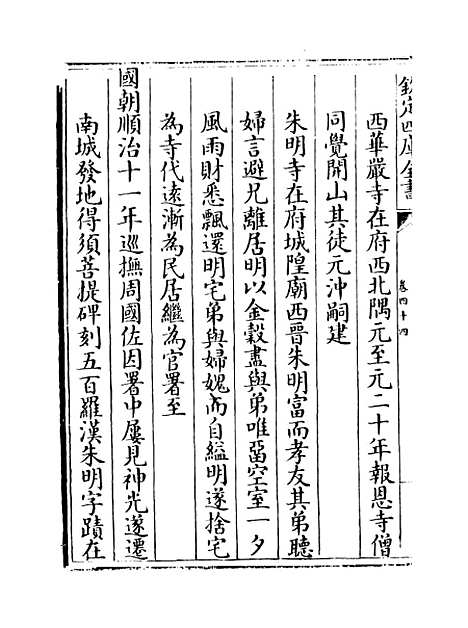 欽定四庫全書
卷四十四
西華嚴寺在府西北隅元至元二十年報恩寺僧
同覺開山其徒元沖嗣建
朱明寺在府城隍廟西晉朱明富而孝友其弟聽
婦言避兄離居明以金穀盡與弟唯留空室一夕
風雨財悉飄還明宅弟與婦媿而自縊明遂捨宅
為寺代遠漸為民居繼為官署至
國朝順治十一年巡撫周國佐因署中屢見神光遂遷
南城發地得須菩提碑刻五百羅漢朱明字蹟在